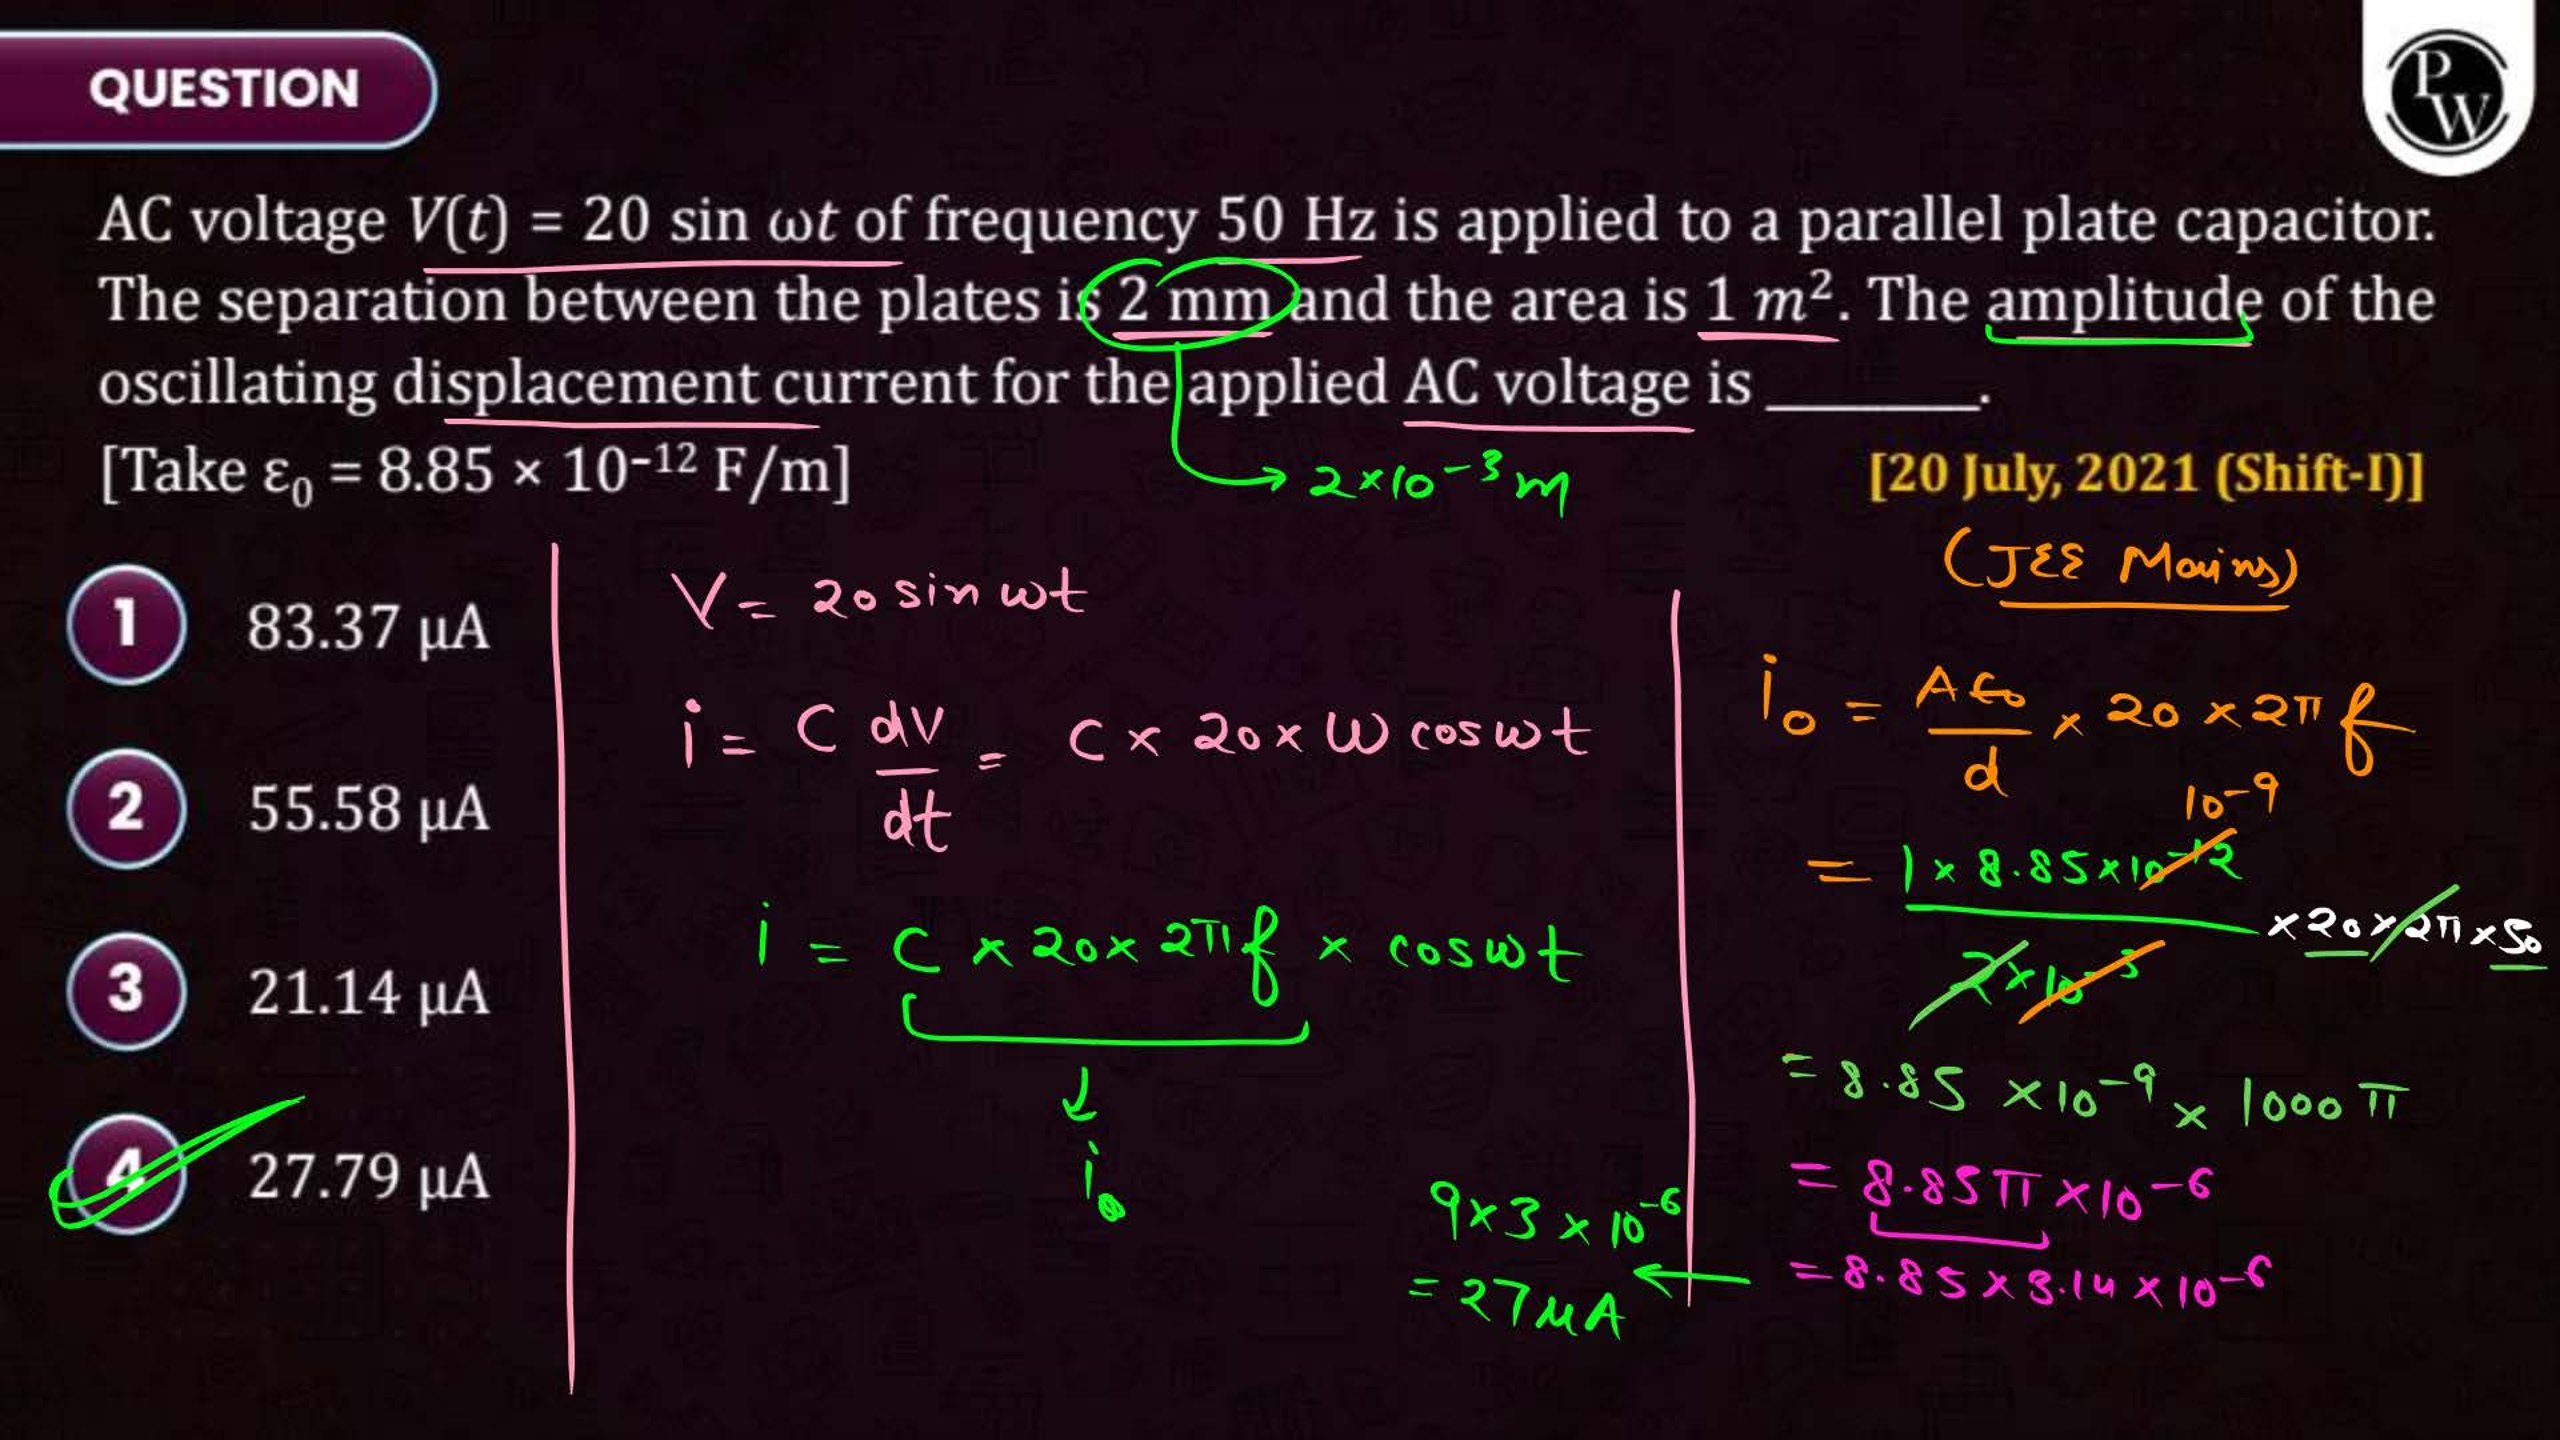 QUESTION
PW
AC voltage V(t) = 20 sin ωt of frequency 50 Hz is applied to a parallel plate capacitor.
The separation between the plates is 2 mm and the area is 1 m². The amplitude of the
oscillating displacement current for the applied AC voltage is ________.
[Take ε₀ = 8.85 × 10⁻¹² F/m]
→ 2×10⁻³ m
[20 July, 2021 (Shift-I)]
(JEE Mains)
1 83.37 μA
2 55.58 μA
3 21.14 μA
4 27.79 μA
V = 20 sin ωt
i = C dV/dt = C × 20 × ω cos ωt
i = C × 20 × 2πf × cos ωt
↓
i₀
i₀ = Aε₀/d × 20 × 2πf
10⁻⁹
= 1 × 8.85 × 10⁻¹² / 2×10⁻³ × 20 × 2π × 50
= 8.85 × 10⁻⁹ × 1000 π
= 8.85 π × 10⁻⁶
= 8.85 × 3.14 × 10⁻⁶
9 × 3 × 10⁻⁶
= 27 μA